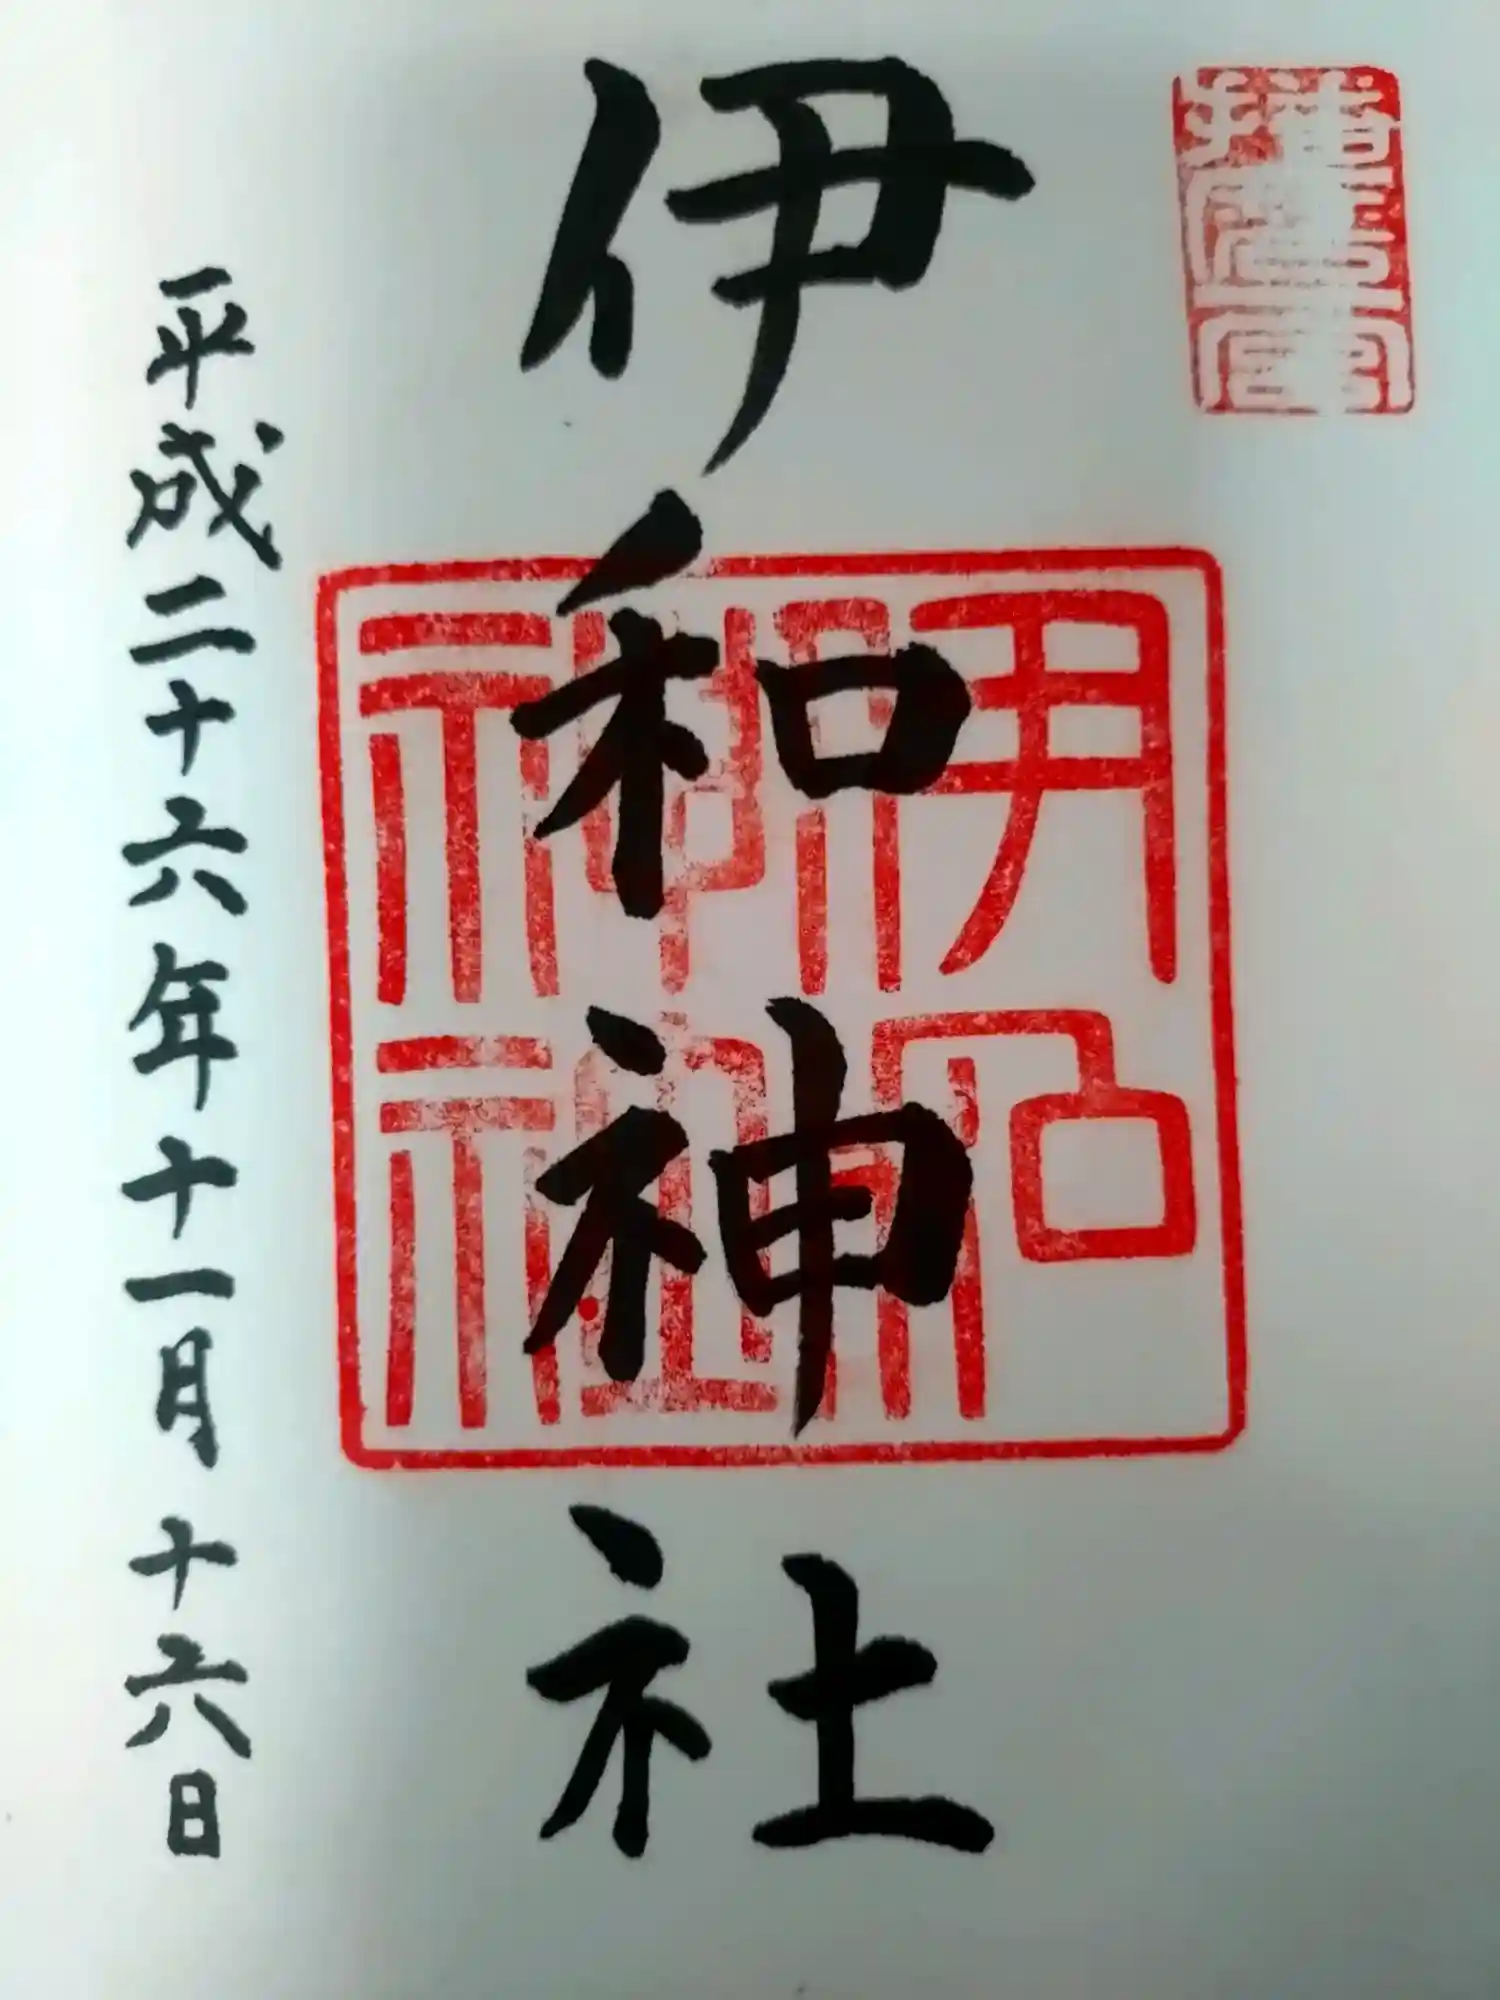 播磨國一宮
伊和神社
伊和神社
平成二十六年十一月十六日